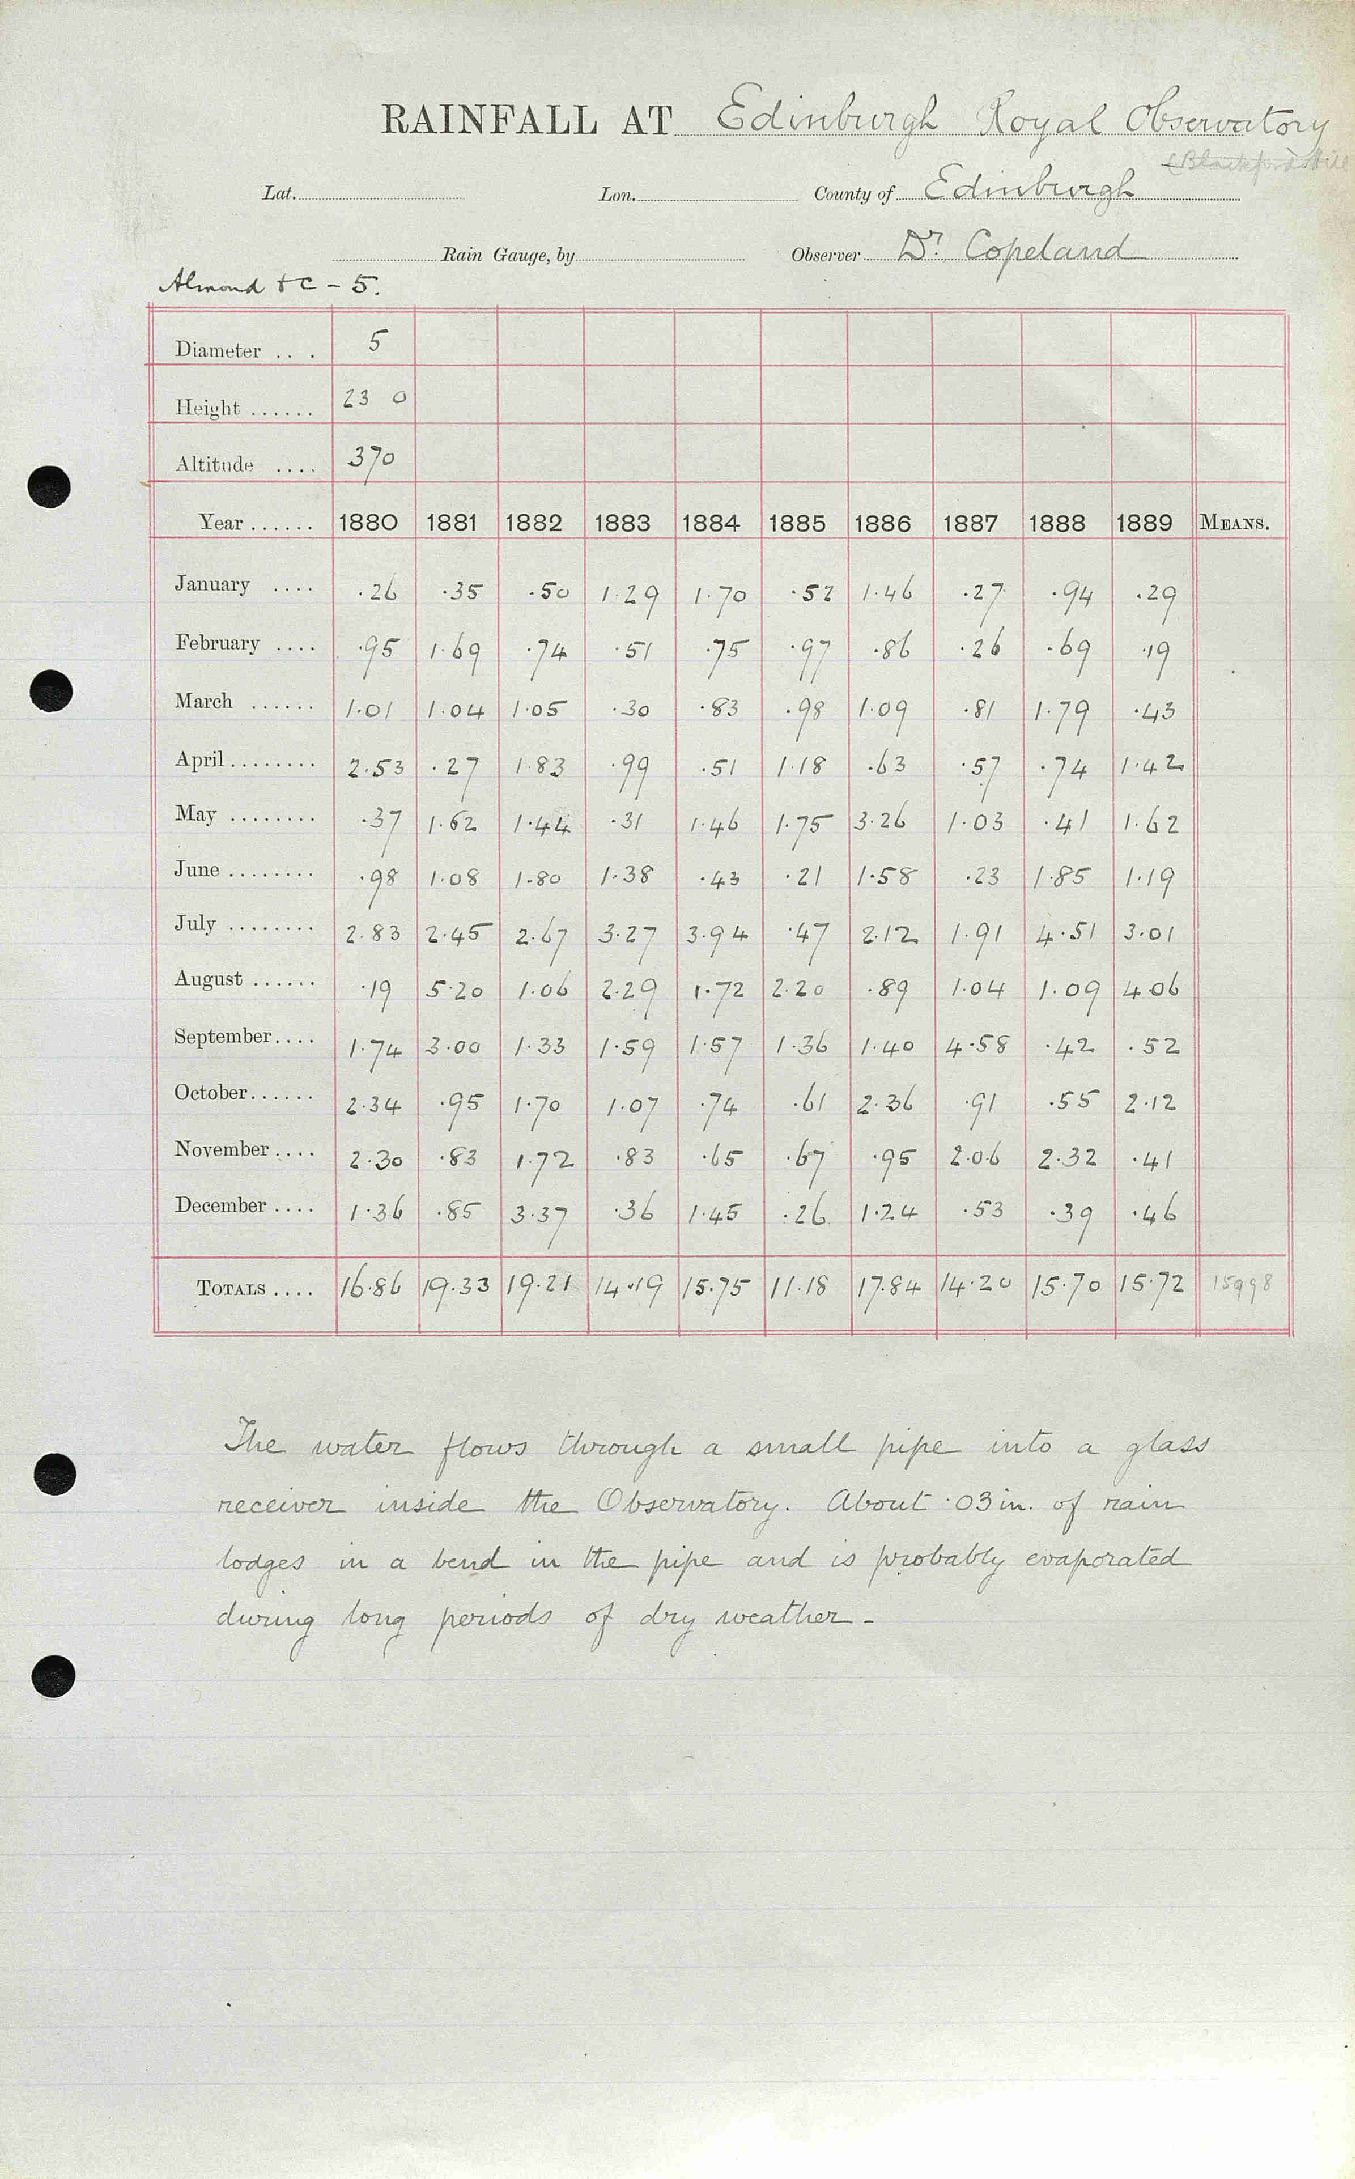 RAINFALL AT Edinburgh Royal Observatory
(Blackford Hill
Lat. Lon. County of Edinburgh
Rain Gauge, by Observer Dr. Copeland
Almond & C - 5.
Diameter .. . 5
Height ...... 23 0
Altitude .... 370
Year ...... 1880 1881 1882 1883 1884 1885 1886 1887 1888 1889 MEANS.
January .... .26 .35 .50 1.29 1.70 .52 1.46 .27 .94 .29
February .... .95 1.69 .74 .51 .75 .97 .86 .26 .69 .19
March ...... 1.01 1.04 1.05 .30 .83 .98 1.09 .81 1.79 .43
April ........ 2.53 .27 1.83 .99 .51 1.18 .63 .57 .74 1.42
May ........ .37 1.62 1.44 .31 1.46 1.75 3.26 1.03 .41 1.62
June ........ .98 1.08 1.80 1.38 .43 .21 1.58 .23 1.85 1.19
July ........ 2.83 2.45 2.67 3.27 3.94 .47 2.12 1.91 4.51 3.01
August ...... .19 5.20 1.06 2.29 1.72 2.20 .89 1.04 1.09 4.06
September .... 1.74 3.00 1.33 1.59 1.57 1.36 1.40 4.58 .42 .52
October ...... 2.34 .95 1.70 1.07 .74 .61 2.36 .91 .55 2.12
November .... 2.30 .83 1.72 .83 .65 .67 .95 2.06 2.32 .41
December .... 1.36 .85 3.37 .36 1.45 .26 1.24 .53 .39 .46
TOTALS .... 16.86 19.33 19.21 14.19 15.75 11.18 17.84 14.20 15.70 15.72 15998
The water flows through a small pipe into a glass
receiver inside the Observatory. About .03 in. of rain
lodges in a bend in the pipe and is probably evaporated
during long periods of dry weather -